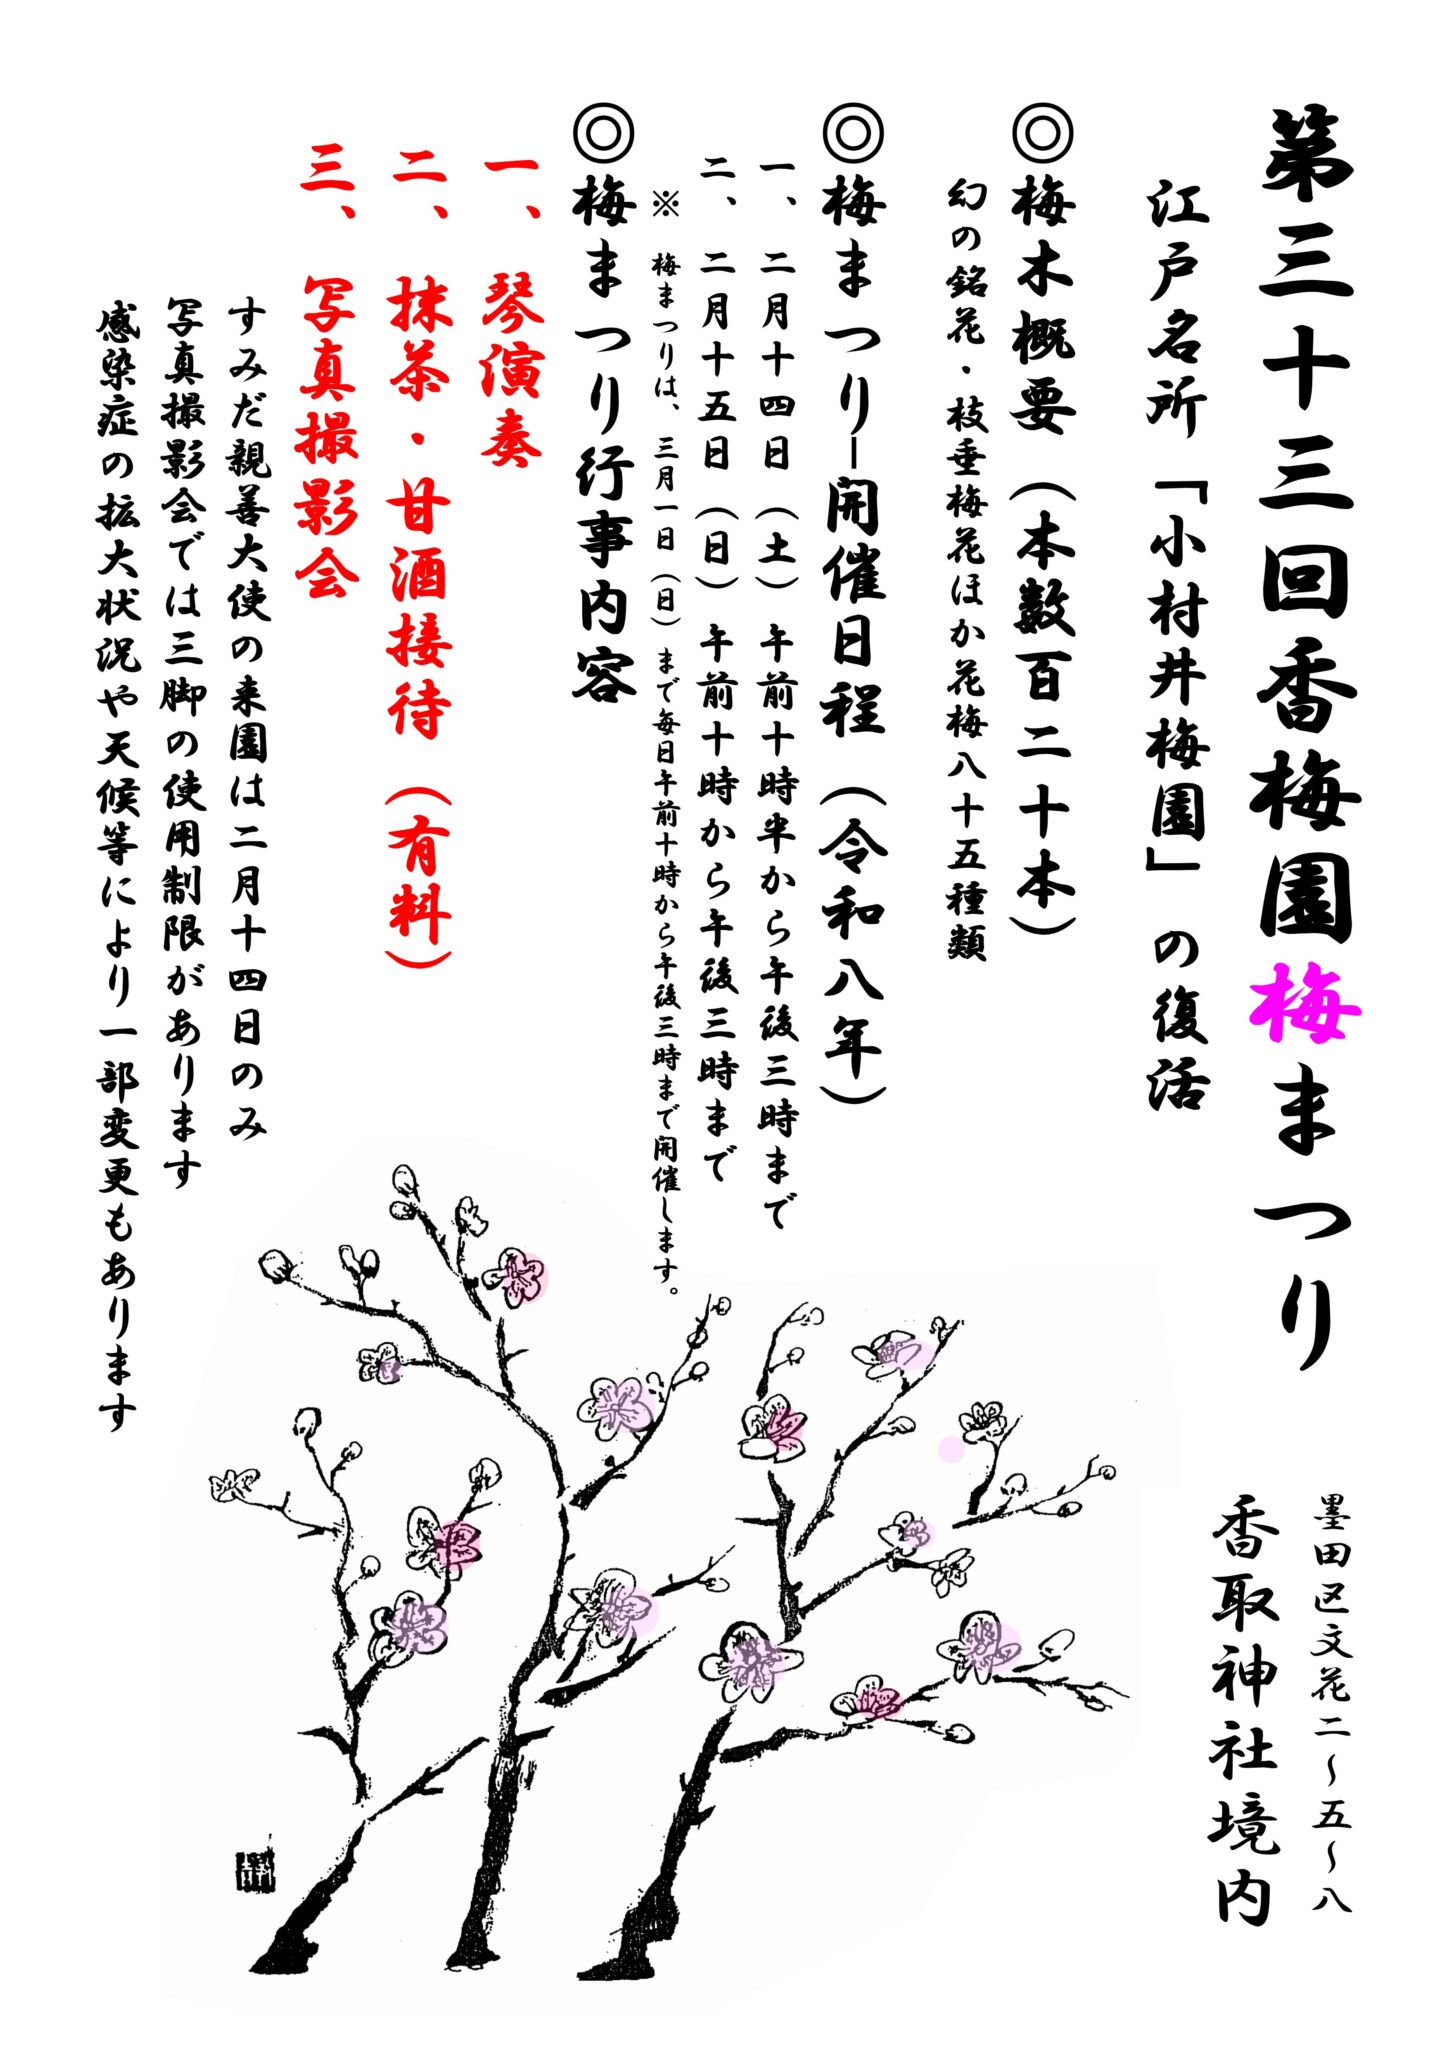 第三十三回香梅園梅まつり
江戸名所「小村井梅園」の復活
◎梅木概要(本数百二十本)
幻の銘花・枝垂梅花ほか花梅八十五種類
◎梅まつり−開催日程(令和八年)
一、二月十四日(土)午前十時半から午後三時まで
二、二月十五日(日)午前十時から午後三時まで
※ 梅まつりは、三月一日(日)まで毎日午前十時から午後三時まで開催します。
◎梅まつり行事内容
一、琴演奏
二、抹茶・甘酒接待(有料)
三、写真撮影会
すみだ親善大使の来園は二月十四日のみ
写真撮影会では三脚の使用制限があります
感染症の拡大状況や天候等により一部変更もあります
墨田区文花二〜五〜八
香取神社境内